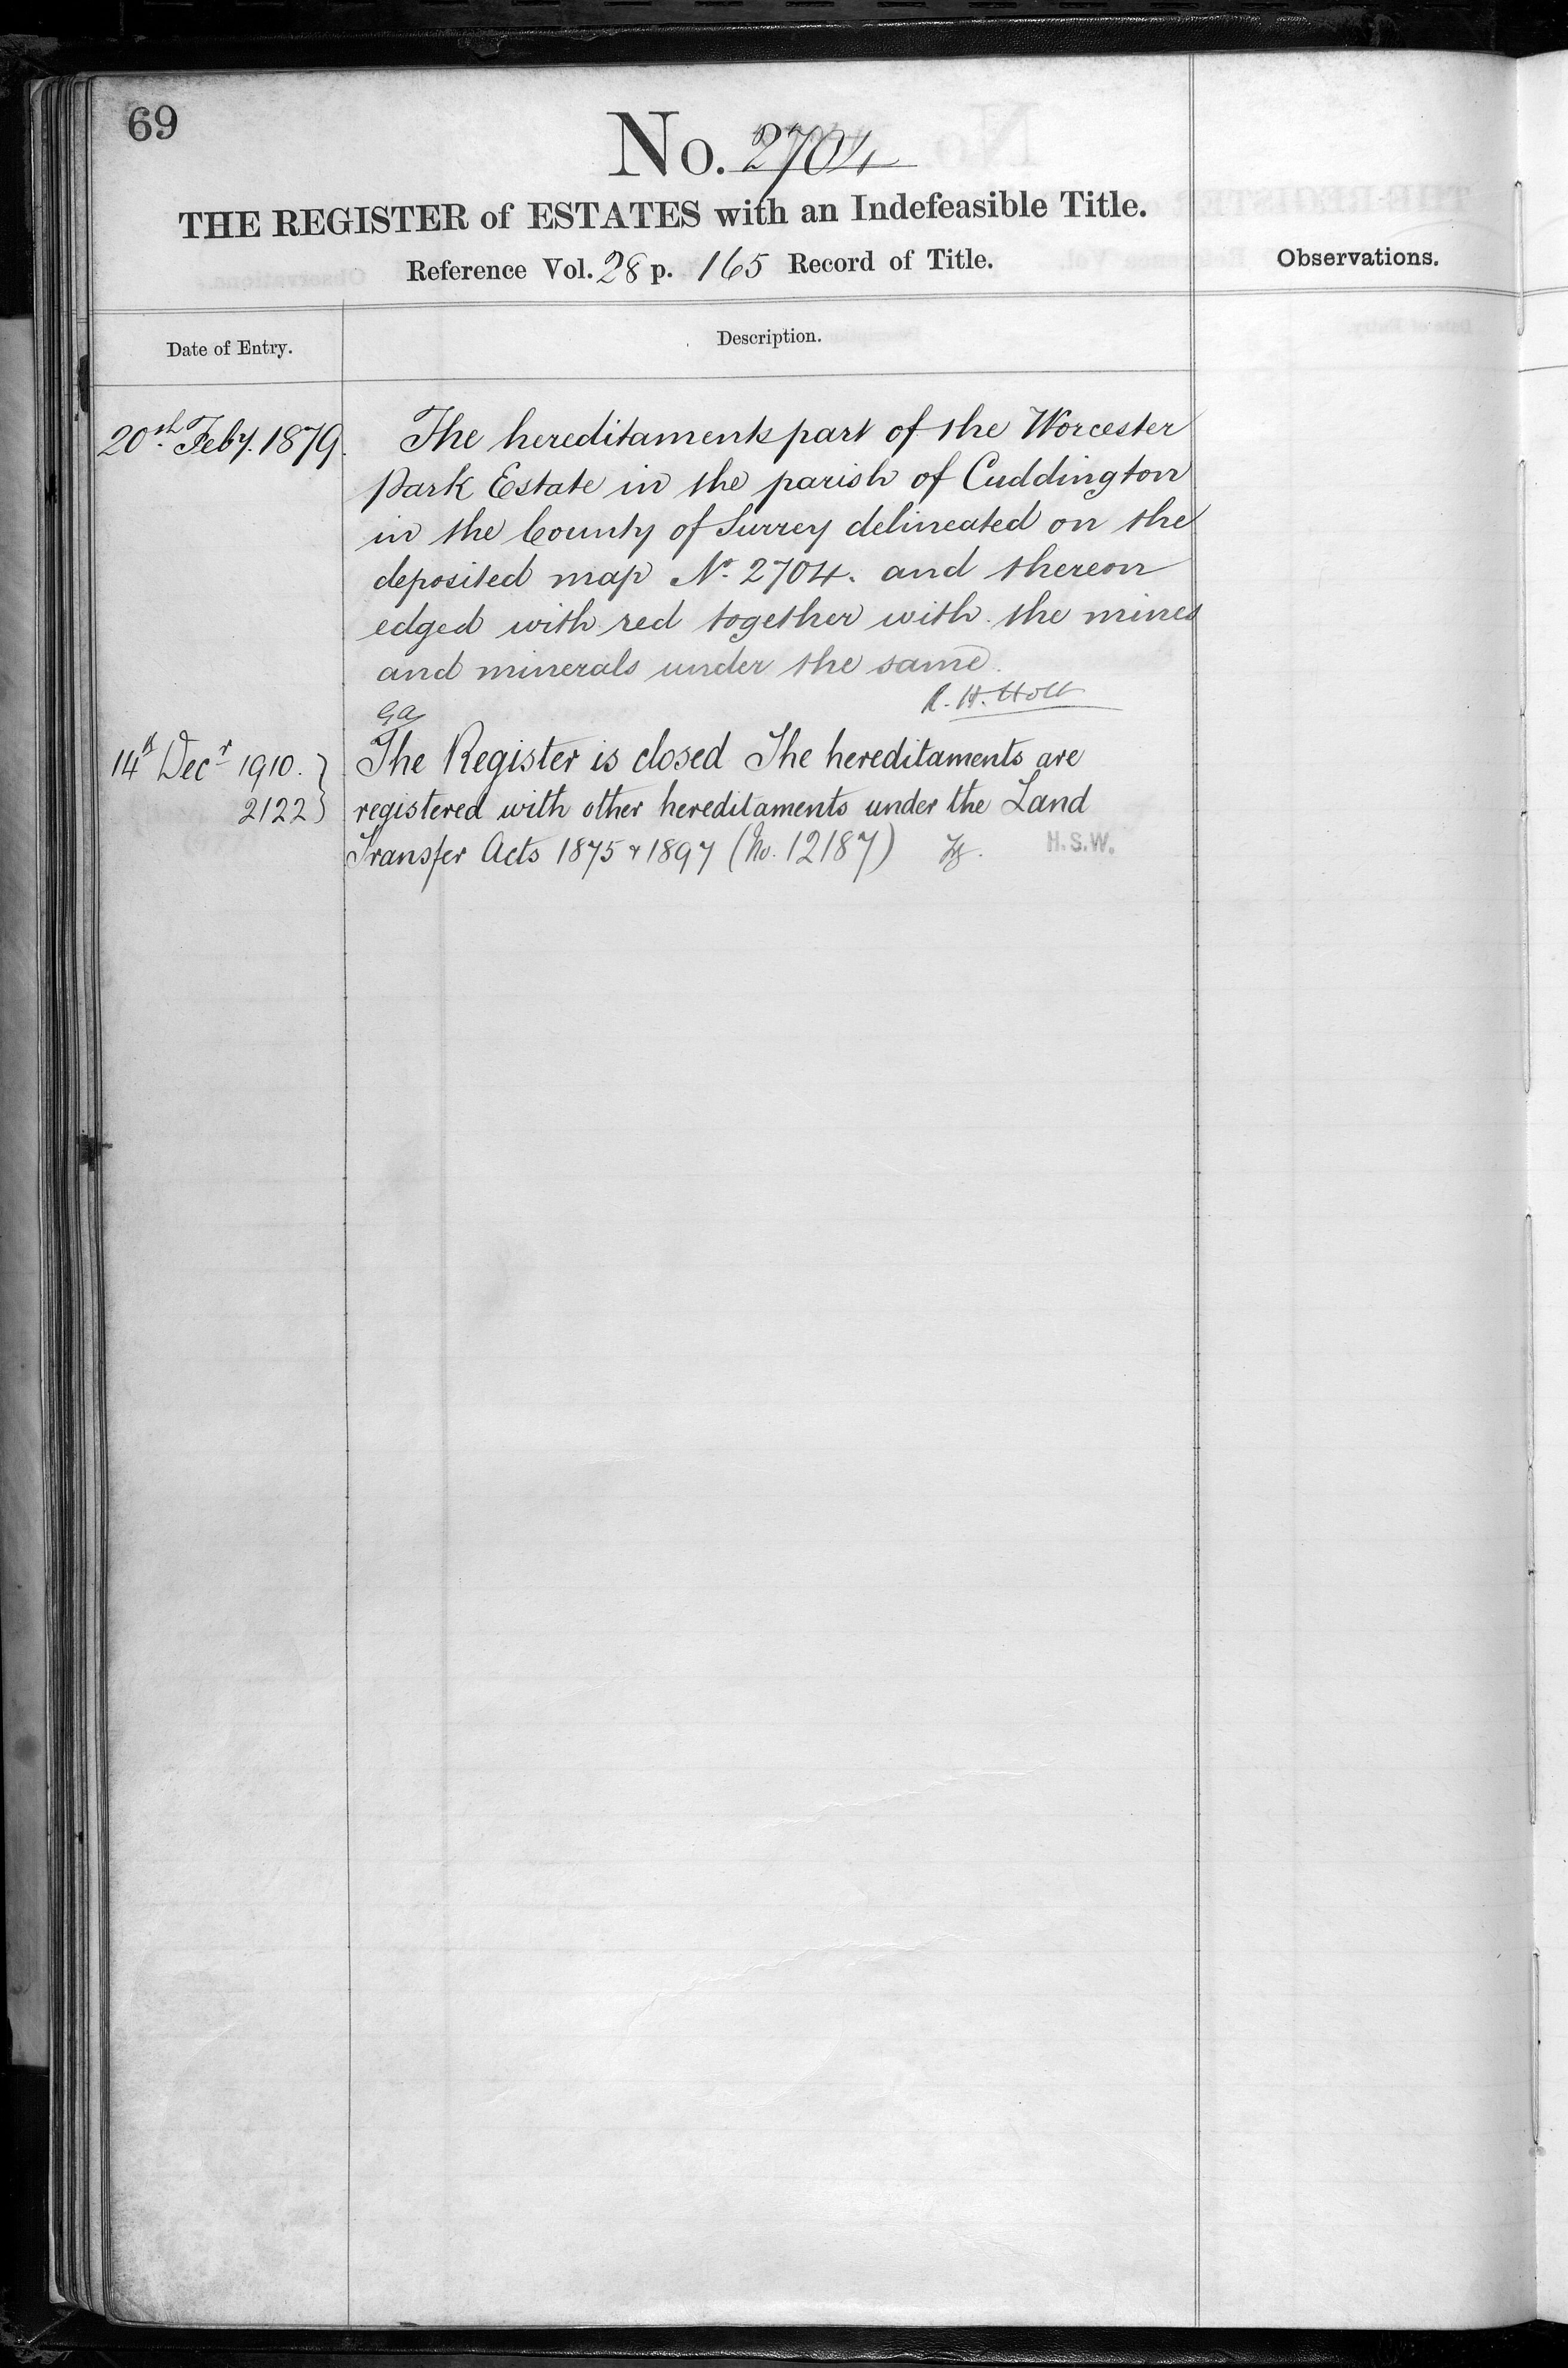 69
No. 2704
THE REGISTER of ESTATES with an Indefeasible Title.
Reference Vol. 28 p. 165 Record of Title.
Observations.
Date of Entry.
Description.
20th Feby. 1879. The hereditaments part of the Worcester
Park Estate in the parish of Cuddington
in the County of Surrey delineated on the
deposited map No. 2704. and thereon
edged with red together with the mines
and minerals under the same.
GA R. H. Holt
14th Decr 1910. } The Register is closed The hereditaments are
2122 } registered with other hereditaments under the Land
Transfer Acts 1875 & 1897 (No. 12187) H.S.W.